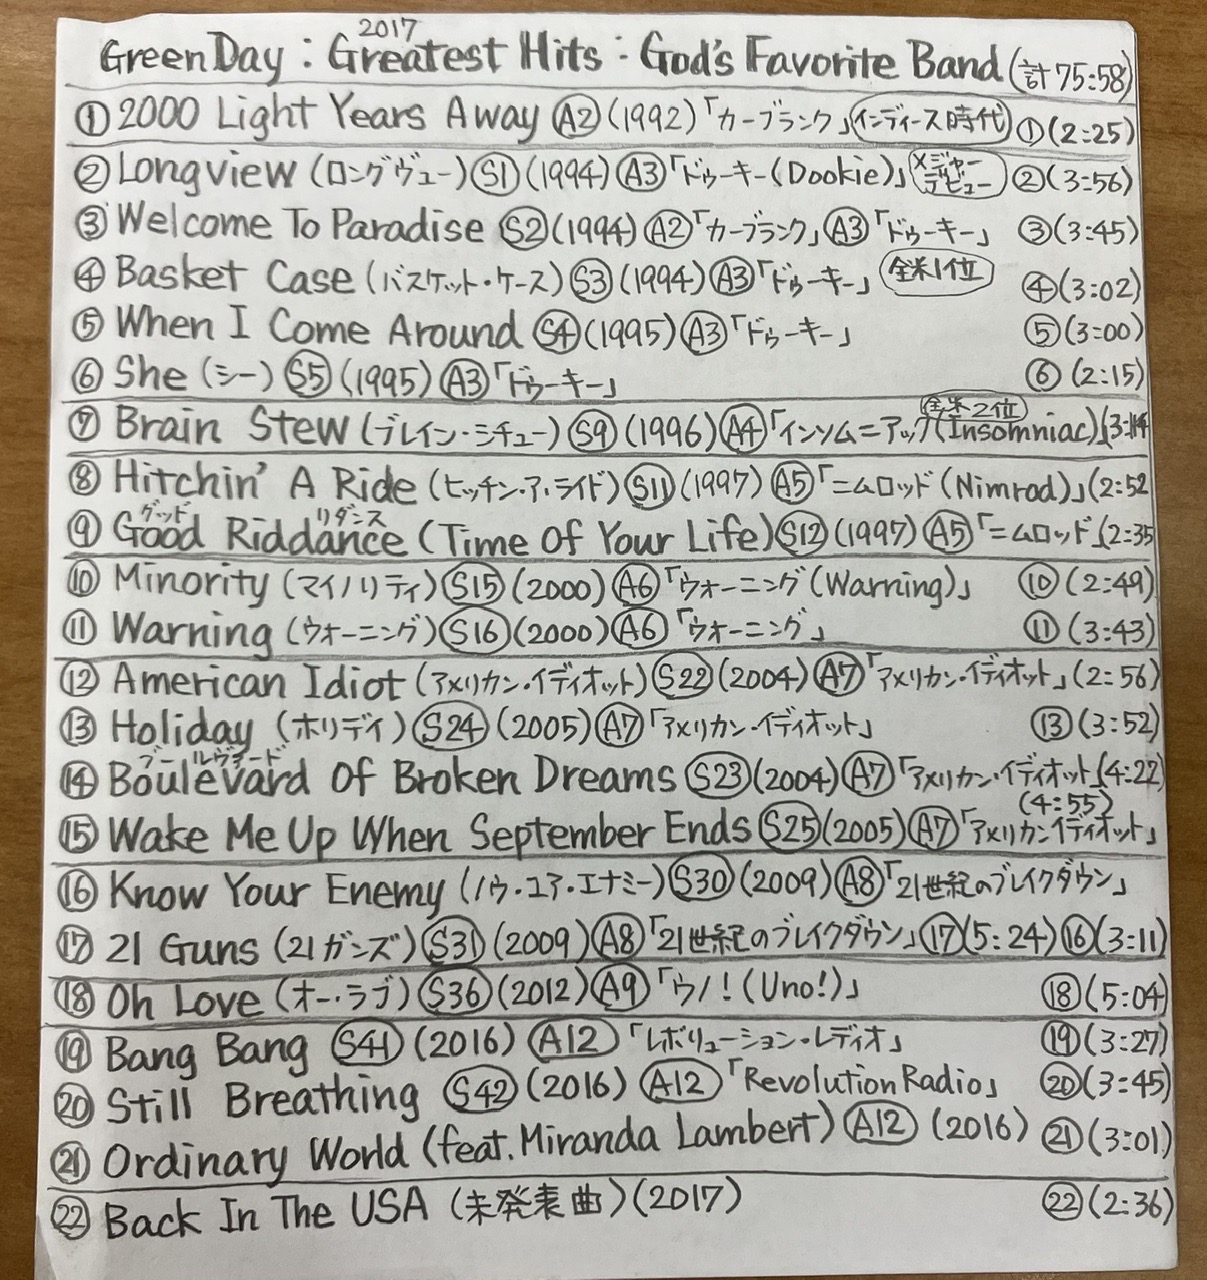 2017
Green Day : Greatest Hits : God's Favorite Band (計75:58)
① 2000 Light Years Away A2 (1992)「カーブランク」インディース時代 ①(2:25)
② Longview (ロングヴュー) S1 (1994) A3「ドゥーキー(Dookie)」メジャーデビュー ②(3:56)
③ Welcome To Paradise S2 (1994) A2「カーブランク」A3「ドゥーキー」 ③(3:45)
④ Basket Case (バスケット・ケース) S3 (1994) A3「ドゥーキー」 全米1位 ④(3:02)
⑤ When I Come Around S4 (1995) A3「ドゥーキー」 ⑤(3:00)
⑥ She (シー) S5 (1995) A3「ドゥーキー」 ⑥(2:15)
全米2位
⑦ Brain Stew (ブレイン・シチュー) S9 (1996) A4「インソムニアック(Insomniac)」(3:14
⑧ Hitchin' A Ride (ヒッチン・ア・ライド) S11 (1997) A5「ニムロッド(Nimrod)」(2:52
グッド リダンス
⑨ Good Riddance (Time Of Your Life) S12 (1997) A5「ニムロッド」(2:35
⑩ Minority (マイノリティ) S15 (2000) A6「ウォーニング(Warning)」 ⑩(2:49)
⑪ Warning (ウォーニング) S16 (2000) A6「ウォーニング」 ⑪(3:43)
⑫ American Idiot (アメリカン・イディオット) S22 (2004) A7「アメリカン・イディオット」(2:56)
⑬ Holiday (ホリデイ) S24 (2005) A7「アメリカン・イディオット」 ⑬(3:52)
ブールヴァード
⑭ Boulevard Of Broken Dreams S23 (2004) A7「アメリカン・イディオット」(4:22)
(4:55)
⑮ Wake Me Up When September Ends S25 (2005) A7「アメリカンイディオット」
⑯ Know Your Enemy (ノウ・ユア・エナミー) S30 (2009) A8「21世紀のブレイクダウン」
⑰ 21 Guns (21ガンズ) S31 (2009) A8「21世紀のブレイクダウン」⑰(5:24) ⑯(3:11)
⑱ Oh Love (オー・ラブ) S36 (2012) A9「ウノ!(Uno!)」 ⑱(5:04)
⑲ Bang Bang S41 (2016) A12「レボリューション・レディオ」 ⑲(3:27)
⑳ Still Breathing S42 (2016) A12「Revolution Radio」 ⑳(3:45)
㉑ Ordinary World (feat. Miranda Lambert) A12 (2016) ㉑(3:01)
㉒ Back In The USA (未発表曲)(2017) ㉒(2:36)